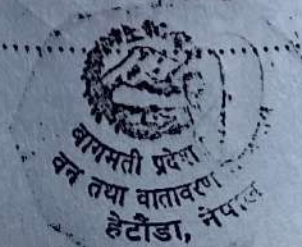 बागमती प्रदेश
वन तथा वातावरण
हेटौंडा, नेपाल